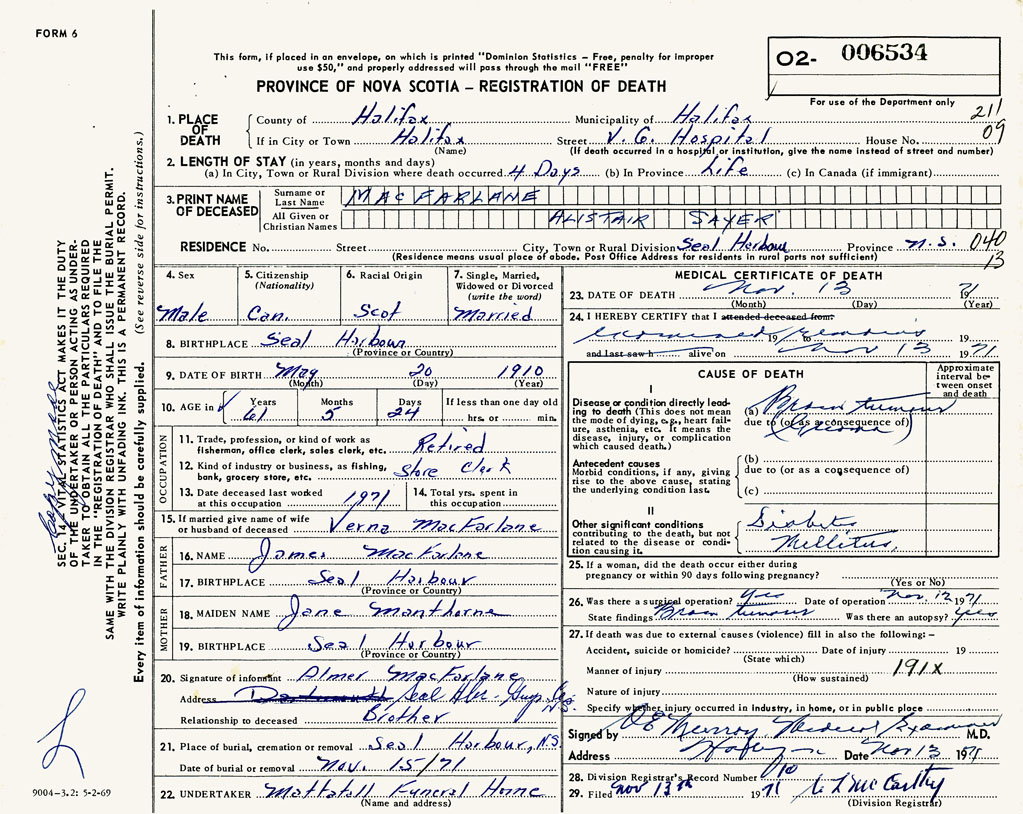 FORM 6
This form, if placed in an envelope, on which is printed "Dominion Statistics – Free, penalty for improper
use $50," and properly addressed will pass through the mail "FREE"
PROVINCE OF NOVA SCOTIA – REGISTRATION OF DEATH
O2- 006534
For use of the Department only
211
09
1. PLACE OF DEATH
County of Halifax Municipality of Halifax
If in City or Town Halifax Street V. G. Hospital House No.
(Name) (If death occurred in a hospital or institution, give the name instead of street and number)
2. LENGTH OF STAY (in years, months and days)
(a) In City, Town or Rural Division where death occurred 4 Days (b) In Province Life (c) In Canada (if immigrant)
3. PRINT NAME OF DECEASED
Surname or Last Name MACFARLANE
All Given or Christian Names ALISTAIR SAYER
RESIDENCE No. Street City, Town or Rural Division Seal Harbour Province N.S. 040
(Residence means usual place of abode. Post Office Address for residents in rural parts not sufficient) 13
4. Sex
Male
5. Citizenship
(Nationality)
Can.
6. Racial Origin
Scot
7. Single, Married,
Widowed or Divorced
(write the word)
Married
8. BIRTHPLACE Seal Harbour
(Province or Country)
9. DATE OF BIRTH May 20 1910
(Month) (Day) (Year)
10. AGE in Years Months Days If less than one day old
61 5 24 hrs. or min.
OCCUPATION
11. Trade, profession, or kind of work as
fisherman, office clerk, sales clerk, etc. Retired
12. Kind of industry or business, as fishing,
bank, grocery store, etc. Store Clerk
13. Date deceased last worked
at this occupation 1971
14. Total yrs. spent in
this occupation
15. If married give name of wife
or husband of deceased Verna MacFarlane
FATHER
16. NAME James MacFarlane
17. BIRTHPLACE Seal Harbour
(Province or Country)
MOTHER
18. MAIDEN NAME Jane Manthorne
19. BIRTHPLACE Seal Harbour
(Province or Country)
20. Signature of informant Almer MacFarlane
Address Dartmouth Seal Hbr. Guys. Co. N.S.
Relationship to deceased Brother
21. Place of burial, cremation or removal Seal Harbour, N.S.
Date of burial or removal Nov. 15/71
22. UNDERTAKER Mattatall Funeral Home
(Name and address)
MEDICAL CERTIFICATE OF DEATH
23. DATE OF DEATH Nov. 13 1971
(Month) (Day) (Year)
24. I HEREBY CERTIFY that I attended deceased from:
examined remains 19 to
and last saw h alive on Nov 13 1971
CAUSE OF DEATH
Approximate
interval be-
tween onset
and death
I
Disease or condition directly lead-
ing to death (This does not mean
the mode of dying, e.g., heart fail-
ure, asthenia, etc. It means the
disease, injury, or complication
which caused death.)
(a) Brain tumour
due to (or as a consequence of)
(Glioma)
Antecedent causes
Morbid conditions, if any, giving
rise to the above cause, stating
the underlying condition last.
(b)
due to (or as a consequence of)
(c)
II
Other significant conditions
contributing to the death, but not
related to the disease or condi-
tion causing it.
Diabetes
Mellitus,
25. If a woman, did the death occur either during
pregnancy or within 90 days following pregnancy?
(Yes or No)
26. Was there a surgical operation? yes Date of operation Nov. 12 1971
State findings Brain tumour Was there an autopsy? yes
27. If death was due to external causes (violence) fill in also the following:–
Accident, suicide or homicide? Date of injury 19
(State which)
Manner of injury 191X
(How sustained)
Nature of injury
Specify whether injury occurred in industry, in home, or in public place
Signed by O E Murray Medical Examiner M.D.
Address Halifax Date Nov 13 1971
28. Division Registrar's Record Number
29. Filed Nov 13th 1971 McCarthy
(Division Registrar)
SEC. 14 – VITAL STATISTICS ACT MAKES IT THE DUTY
OF THE UNDERTAKER OR PERSON ACTING AS UNDER-
TAKER TO OBTAIN ALL THE PARTICULARS REQUIRED
IN THE "REGISTRATION OF DEATH" AND TO FILE THE
SAME WITH THE DIVISION REGISTRAR WHO SHALL ISSUE THE BURIAL PERMIT.
WRITE PLAINLY WITH UNFADING INK. THIS IS A PERMANENT RECORD.
Every item of information should be carefully supplied. (See reverse side for instructions.)
9004–3.2: 5-2-69